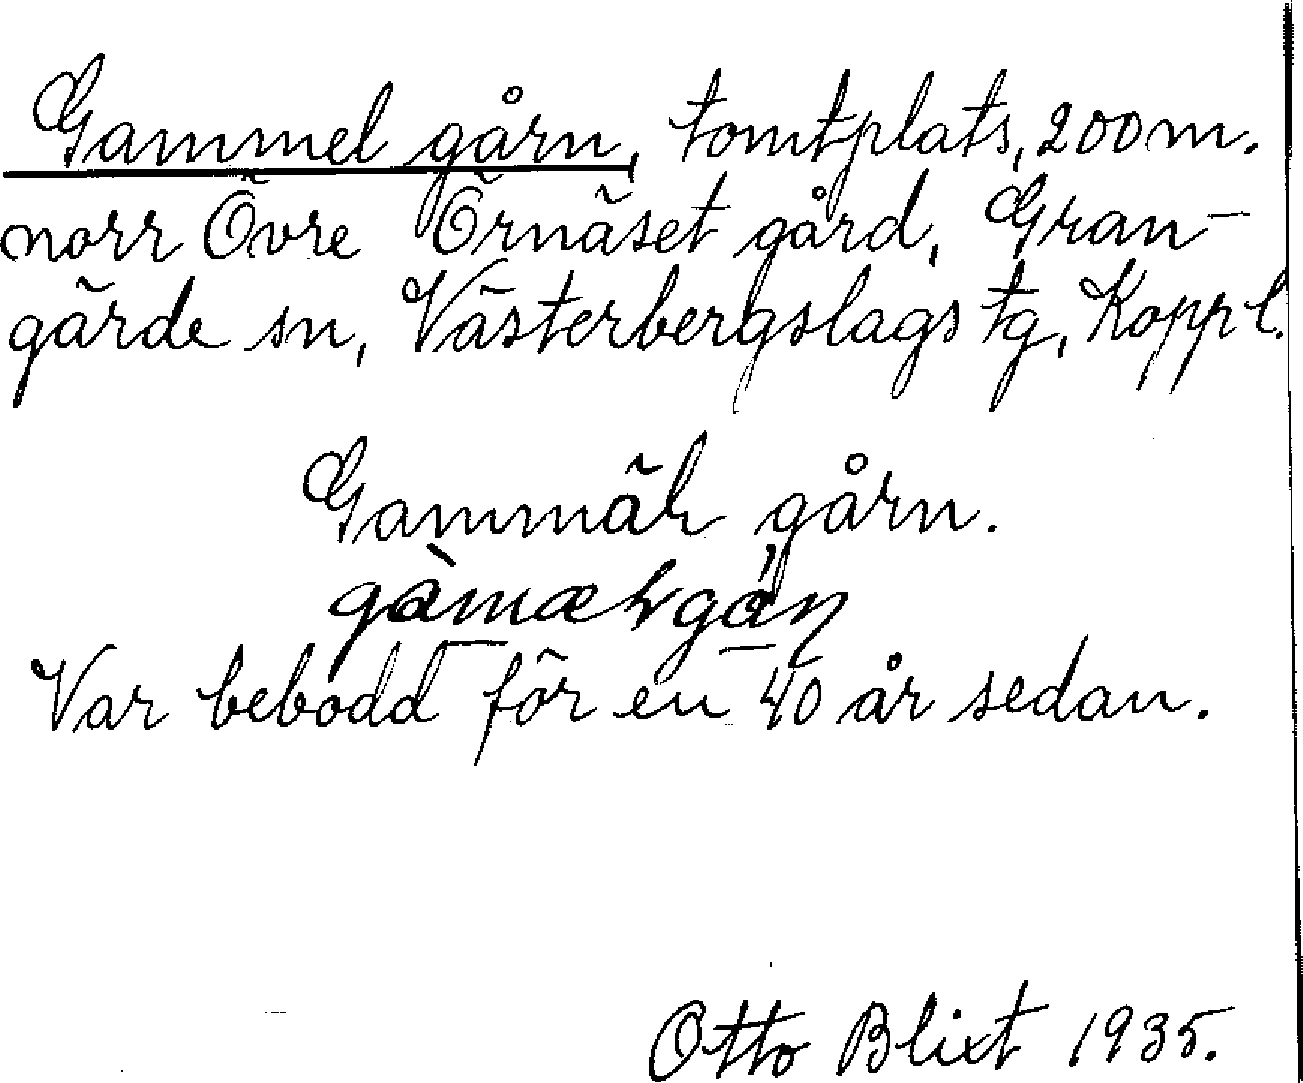 Gammel gårn, tomtplats, 200 m.
norr Övre Örnäset gård, Gran-
gärde sn, Västerbergslags tg, Kopp l.
Gammäl gårn.
Var bebodd för en 40 år sedan.
Otto Blixt 1935.